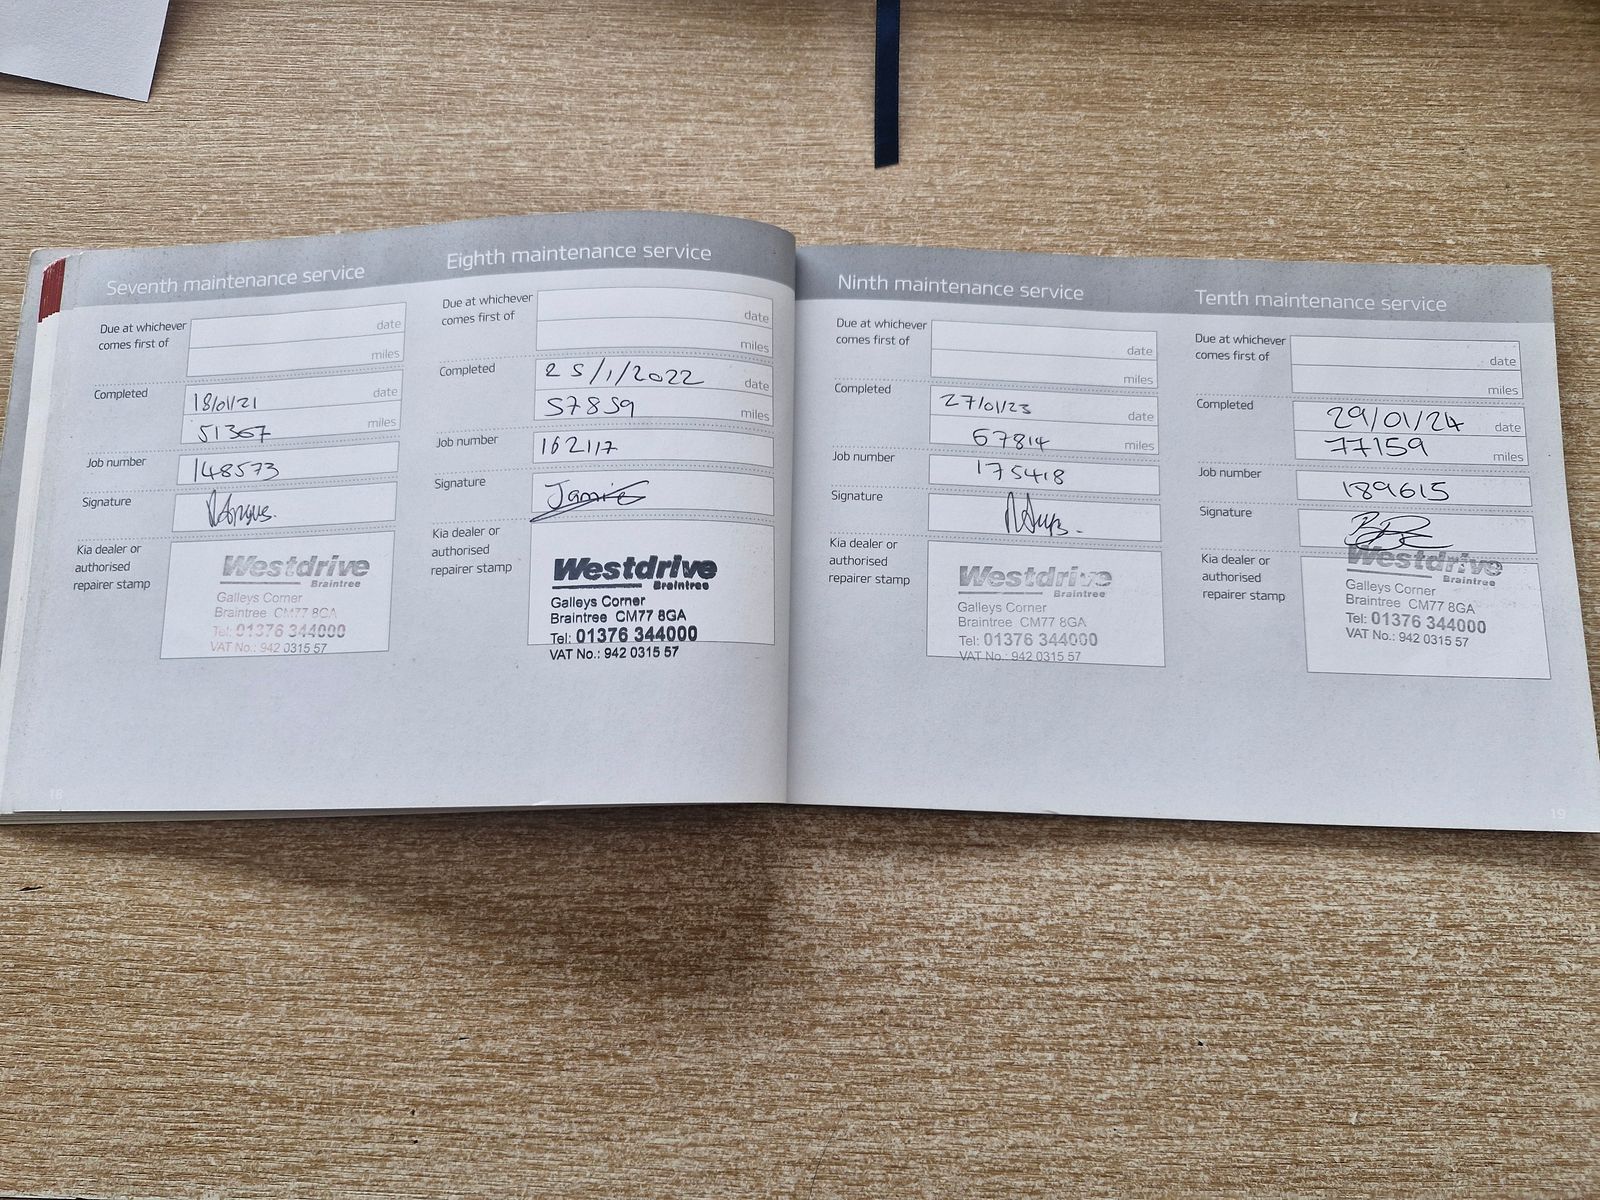 Seventh maintenance service
Due at whichever
comes first of
date
miles
Completed
18/01/21
date
51367
miles
Job number
148573
Signature
Kia dealer or
authorised
repairer stamp
Westdrive
Braintree
Galleys Corner
Braintree CM77 8GA
Tel: 01376 344000
VAT No.: 942 0315 57
18
Eighth maintenance service
Due at whichever
comes first of
date
miles
Completed
25/1/2022
date
57859
miles
Job number
162117
Signature
Jamie
Kia dealer or
authorised
repairer stamp
Westdrive
Braintree
Galleys Corner
Braintree CM77 8GA
Tel: 01376 344000
VAT No.: 942 0315 57
Ninth maintenance service
Due at whichever
comes first of
date
miles
Completed
27/01/23
date
67814
miles
Job number
175418
Signature
Kia dealer or
authorised
repairer stamp
Westdrive
Braintree
Galleys Corner
Braintree CM77 8GA
Tel: 01376 344000
VAT No.: 942 0315 57
Tenth maintenance service
Due at whichever
comes first of
date
miles
Completed
29/01/24
date
77159
miles
Job number
189615
Signature
Kia dealer or
authorised
repairer stamp
Westdrive
Braintree
Galleys Corner
Braintree CM77 8GA
Tel: 01376 344000
VAT No.: 942 0315 57
19